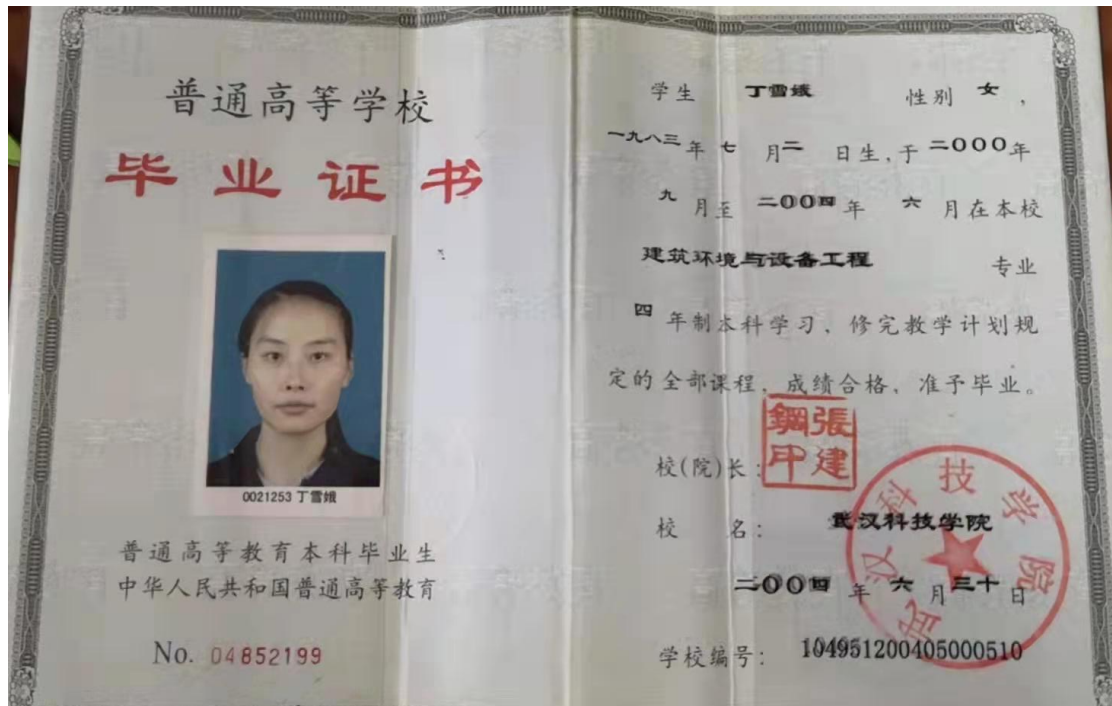 普通高等学校
毕业证书
0021253 丁雪娥
普通高等教育本科毕业生
中华人民共和国普通高等教育
No. 04852199
学生 丁雪娥 性别 女，
一九八三年 七 月 二 日生，于 二000年
九 月至 二00四 年 六 月在本校
建筑环境与设备工程 专业
四 年制本科学习、修完教学计划规
定的全部课程，成绩合格，准予毕业。
校(院)长：
張建鋼印
校 名： 武汉科技学院
武汉科技学院
二00四 年 六 月 三十 日
学校编号： 104951200405000510